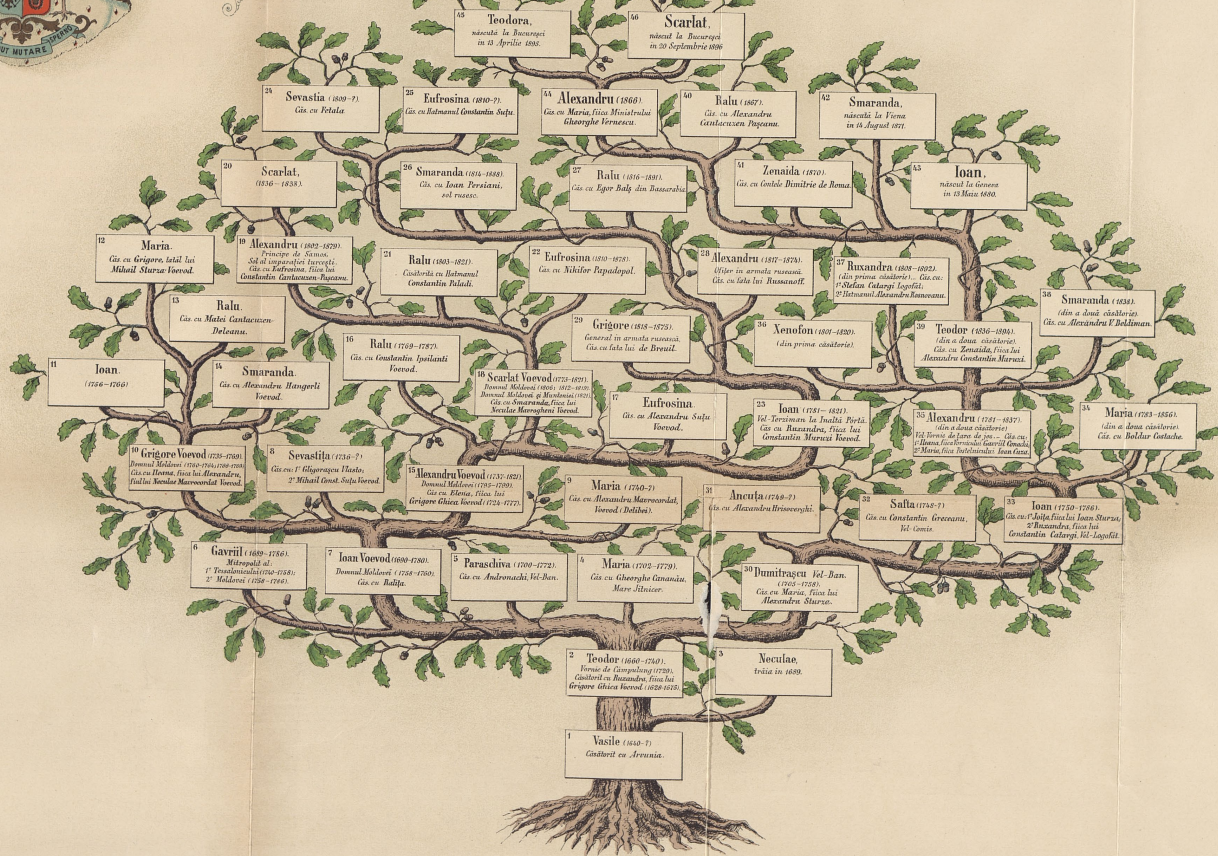 UT MUTARE SPERNO
45
Teodora,
născută la București
in 13 Aprilie 1895.
46
Scarlat,
născut la București
in 20 Septembrie 1896
24
Sevastia (1809-?).
Căs. cu Fetala.
25
Eufrosina (1810-?).
Căs. cu Hatmanul Constantin Suțu.
44
Alexandru (1866).
Căs. cu Maria, fiica Ministrului
Gheorghe Vernescu.
40
Ralu (1867).
Căs. cu Alexandru
Cantacuzen Pașcanu.
42
Smaranda,
născută la Viena
in 14 August 1871.
20
Scarlat,
26
Smaranda (1814-1888).
Căs. cu Ioan Persiani,
sol rusesc.
27
Ralu (1816-1891).
Căs. cu Egor Balș din Bassarabia
41
Zenaida (1870).
Căs. cu Contele Dimitrie de Roma.
43
Ioan,
născut la Geneva
in 13 Maiu 1880.
12
Maria.
Căs. cu Grigore, tatăl lui
Mihail Sturza Voevod.
19
Alexandru (1802-1879).
Principe de Samos.
Sol al împărăției turcești.
Căs. cu Eufrosina, fiica lui
Constantin Cantacuzen-Pașcanu.
21
Ralu (1803-1821).
Căsătorită cu Hatmanul
Constantin Paladi.
22
Eufrosina (1810-1878).
Căs. cu Nikifor Papadopol.
28
Alexandru (1817-1874).
Ofițer in armata rusească
Căs. cu fata lui Russanoff.
37
Ruxandra (1808-1892).
(din prima căsătorie). Căs. cu:
1º Stefan Catargi Logofăt;
2º Hatmanul Alexandru Rosnovanu.
13
Ralu.
Căs. cu Matei Cantacuzen-
Deleanu.
38
Smaranda (1838).
(din a două căsătorie).
Căs. cu Alexandru V. Beldiman.
16
Ralu (1769-1787).
Căs. cu Constantin Ipsilanti
Voevod.
29
Grigore (1818-1875).
General in armata rusească.
Căs. cu fata lui de Breuil.
36
Xenofon (1801-1820).
(din prima căsătorie).
39
Teodor (1836-1894).
(din a doua căsătorie).
Căs. cu Zenaida, fiica lui
Alexandru Constantin Maruzi.
11
Ioan.
(1756-1766)
14
Smaranda.
Căs. cu Alexandru Hangerli
Voevod.
18
Scarlat Voevod (1773-1821).
Domnul Moldovei (1806; 1812-1819)
Domnul Moldovei și Munteniei (1821).
Căs. cu Smaranda, fiica lui
Neculae Mavrogheni Voevod.
17
Eufrosina.
Căs. cu Alexandru Suțu
Voevod.
23
Ioan (1781-1821).
Vel-Terziman la Inalta Pórtă.
Căs. cu Ruxandra, fiica lui
Constantin Muruzi Voevod.
35
Alexandru (1781-1837).
(din a doua căsătorie)
34
Maria (1783-1856).
(din a doua căsătorie).
Căs. cu Boldur Costache.
10
Grigore Voevod (1735-1769).
Căs. cu Ileana, fiica lui Alexandru,
fiul lui Neculae Mavrocordat Voevod.
8
Sevastița (1736-?)
Căs. cu: 1º Gligorașcu Vlasto;
2º Mihail Const. Suțu Voevod.
15
Alexandru Voevod (1737-1821).
Domnul Moldovei (1795-1799).
Căs. cu Elena, fiica lui
Grigore Ghica Voevod (1724-1777).
9
Maria (1740-?)
Căs. cu Alexandru Mavrocordat,
Voevod (Delibei).
31
Ancuța (1749-?)
Căs. cu Alexandru Hrisoverghi.
32
Safta (1748-?)
Căs. cu Constantin Greceanu,
Vel-Comis.
33
Ioan (1750-1786).
Căs. cu: 1º Joița, fiica lui Ioan Sturza,
2º Ruxandra, fiica lui
Constantin Catargi, Vel-Logofăt.
6
Gavriil (1689-1786).
Mitropolit al:
1º Tessalonicului (1740-1758);
2º Moldovei (1758-1786).
7
Ioan Voevod (1690-1780).
Domnul Moldovei (1758-1760).
Căs. cu Balița.
5
Paraschiva (1700-1772).
Căs. cu Andronachi, Vel-Ban.
4
Maria (1702-1779).
Căs. cu Gheorghe Cananău,
Mare Jitnicer.
30
Dumitrașcu Vel-Ban.
(1705-1758).
Căs. cu Maria, fiica lui
Alexandru Sturze.
2
Teodor (1660-1740).
Vornic de Câmpulung (1720).
Căsătorit cu Ruxandra, fiica lui
Grigore Ghica Voevod (1628-1675).
3
Neculae,
trăia in 1689.
1
Vasile (1640-?)
Căsătorit cu Arvunia.